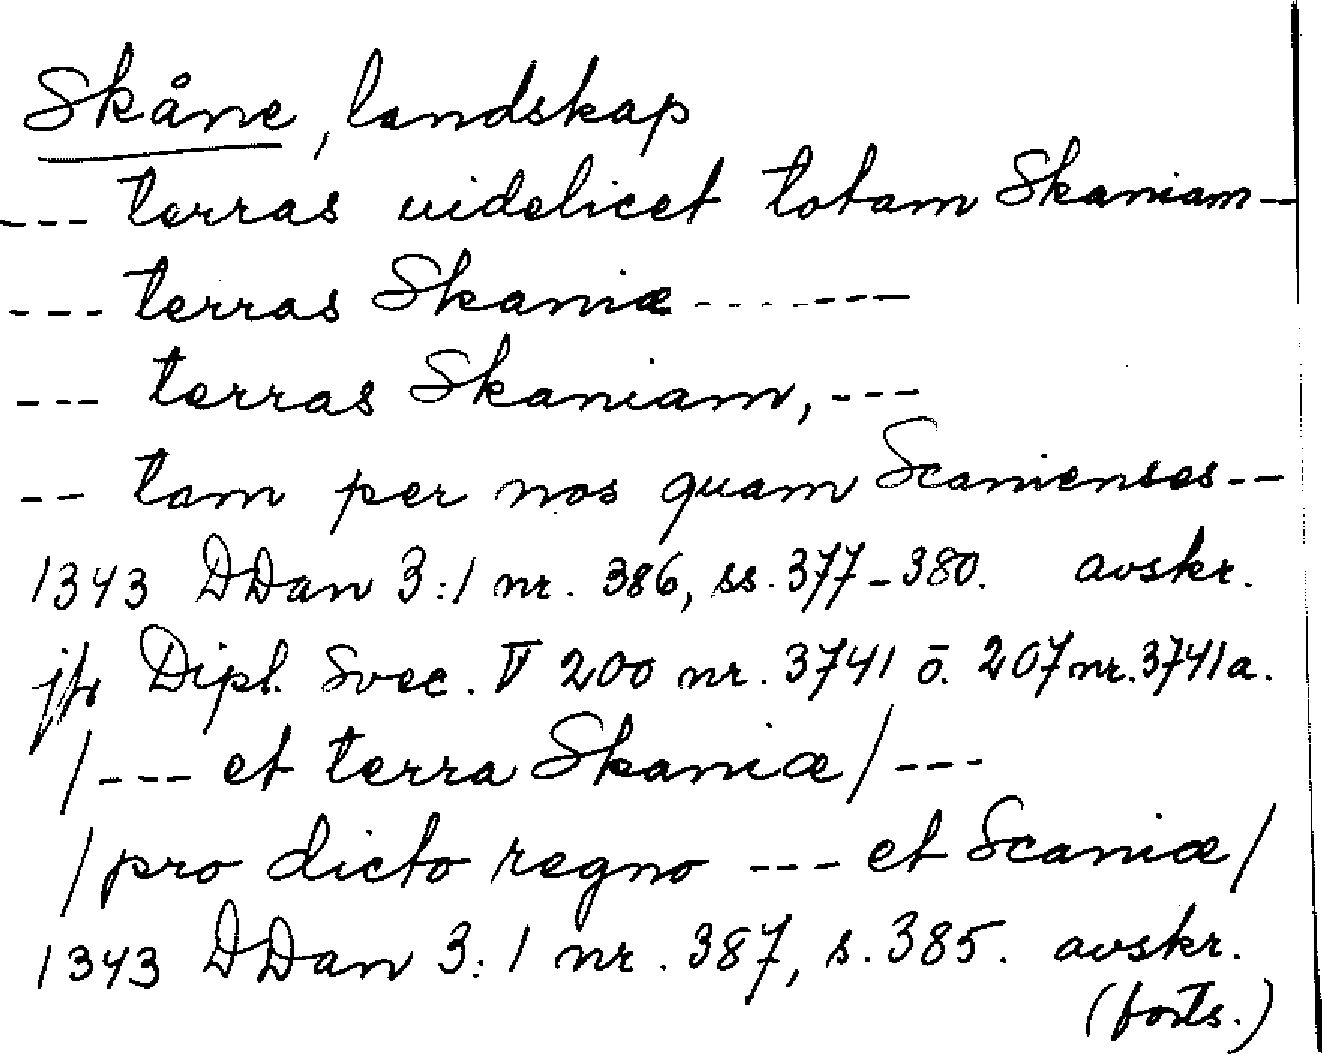 Skåne, landskap
--- terras uidelicet totam Skaniam -
--- terras Skaniæ -------
--- terras Skaniam, ---
-- tam per nos quam Scanienses --
1343 DDan 3:1 nr. 386, ss. 377-380. avskr.
jfr Dipl. Svec. V 200 nr. 3741 o. 207 nr. 3741a.
/--- et terra Skaniæ/ ---
/pro dicto regno --- et Scaniæ/
1343 DDan 3:1 nr. 387, s. 385. avskr.
(forts.)